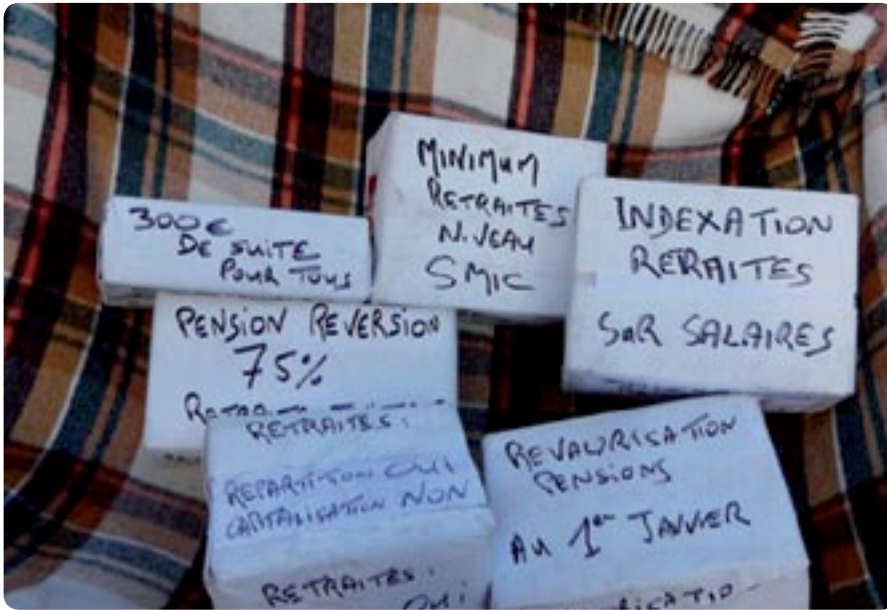 300€
DE SUITE
POUR TOUS
MINIMUM
RETRAITES
NIVEAU
SMIC
INDEXATION
RERAITES
SUR SALAIRES
PENSION REVERSION
75%
RETRAITES :
REPARTITION OUI
CAPITALISATION NON
RETRAITES :
OUI
REVALORISATION
PENSIONS
AU 1er JANVIER